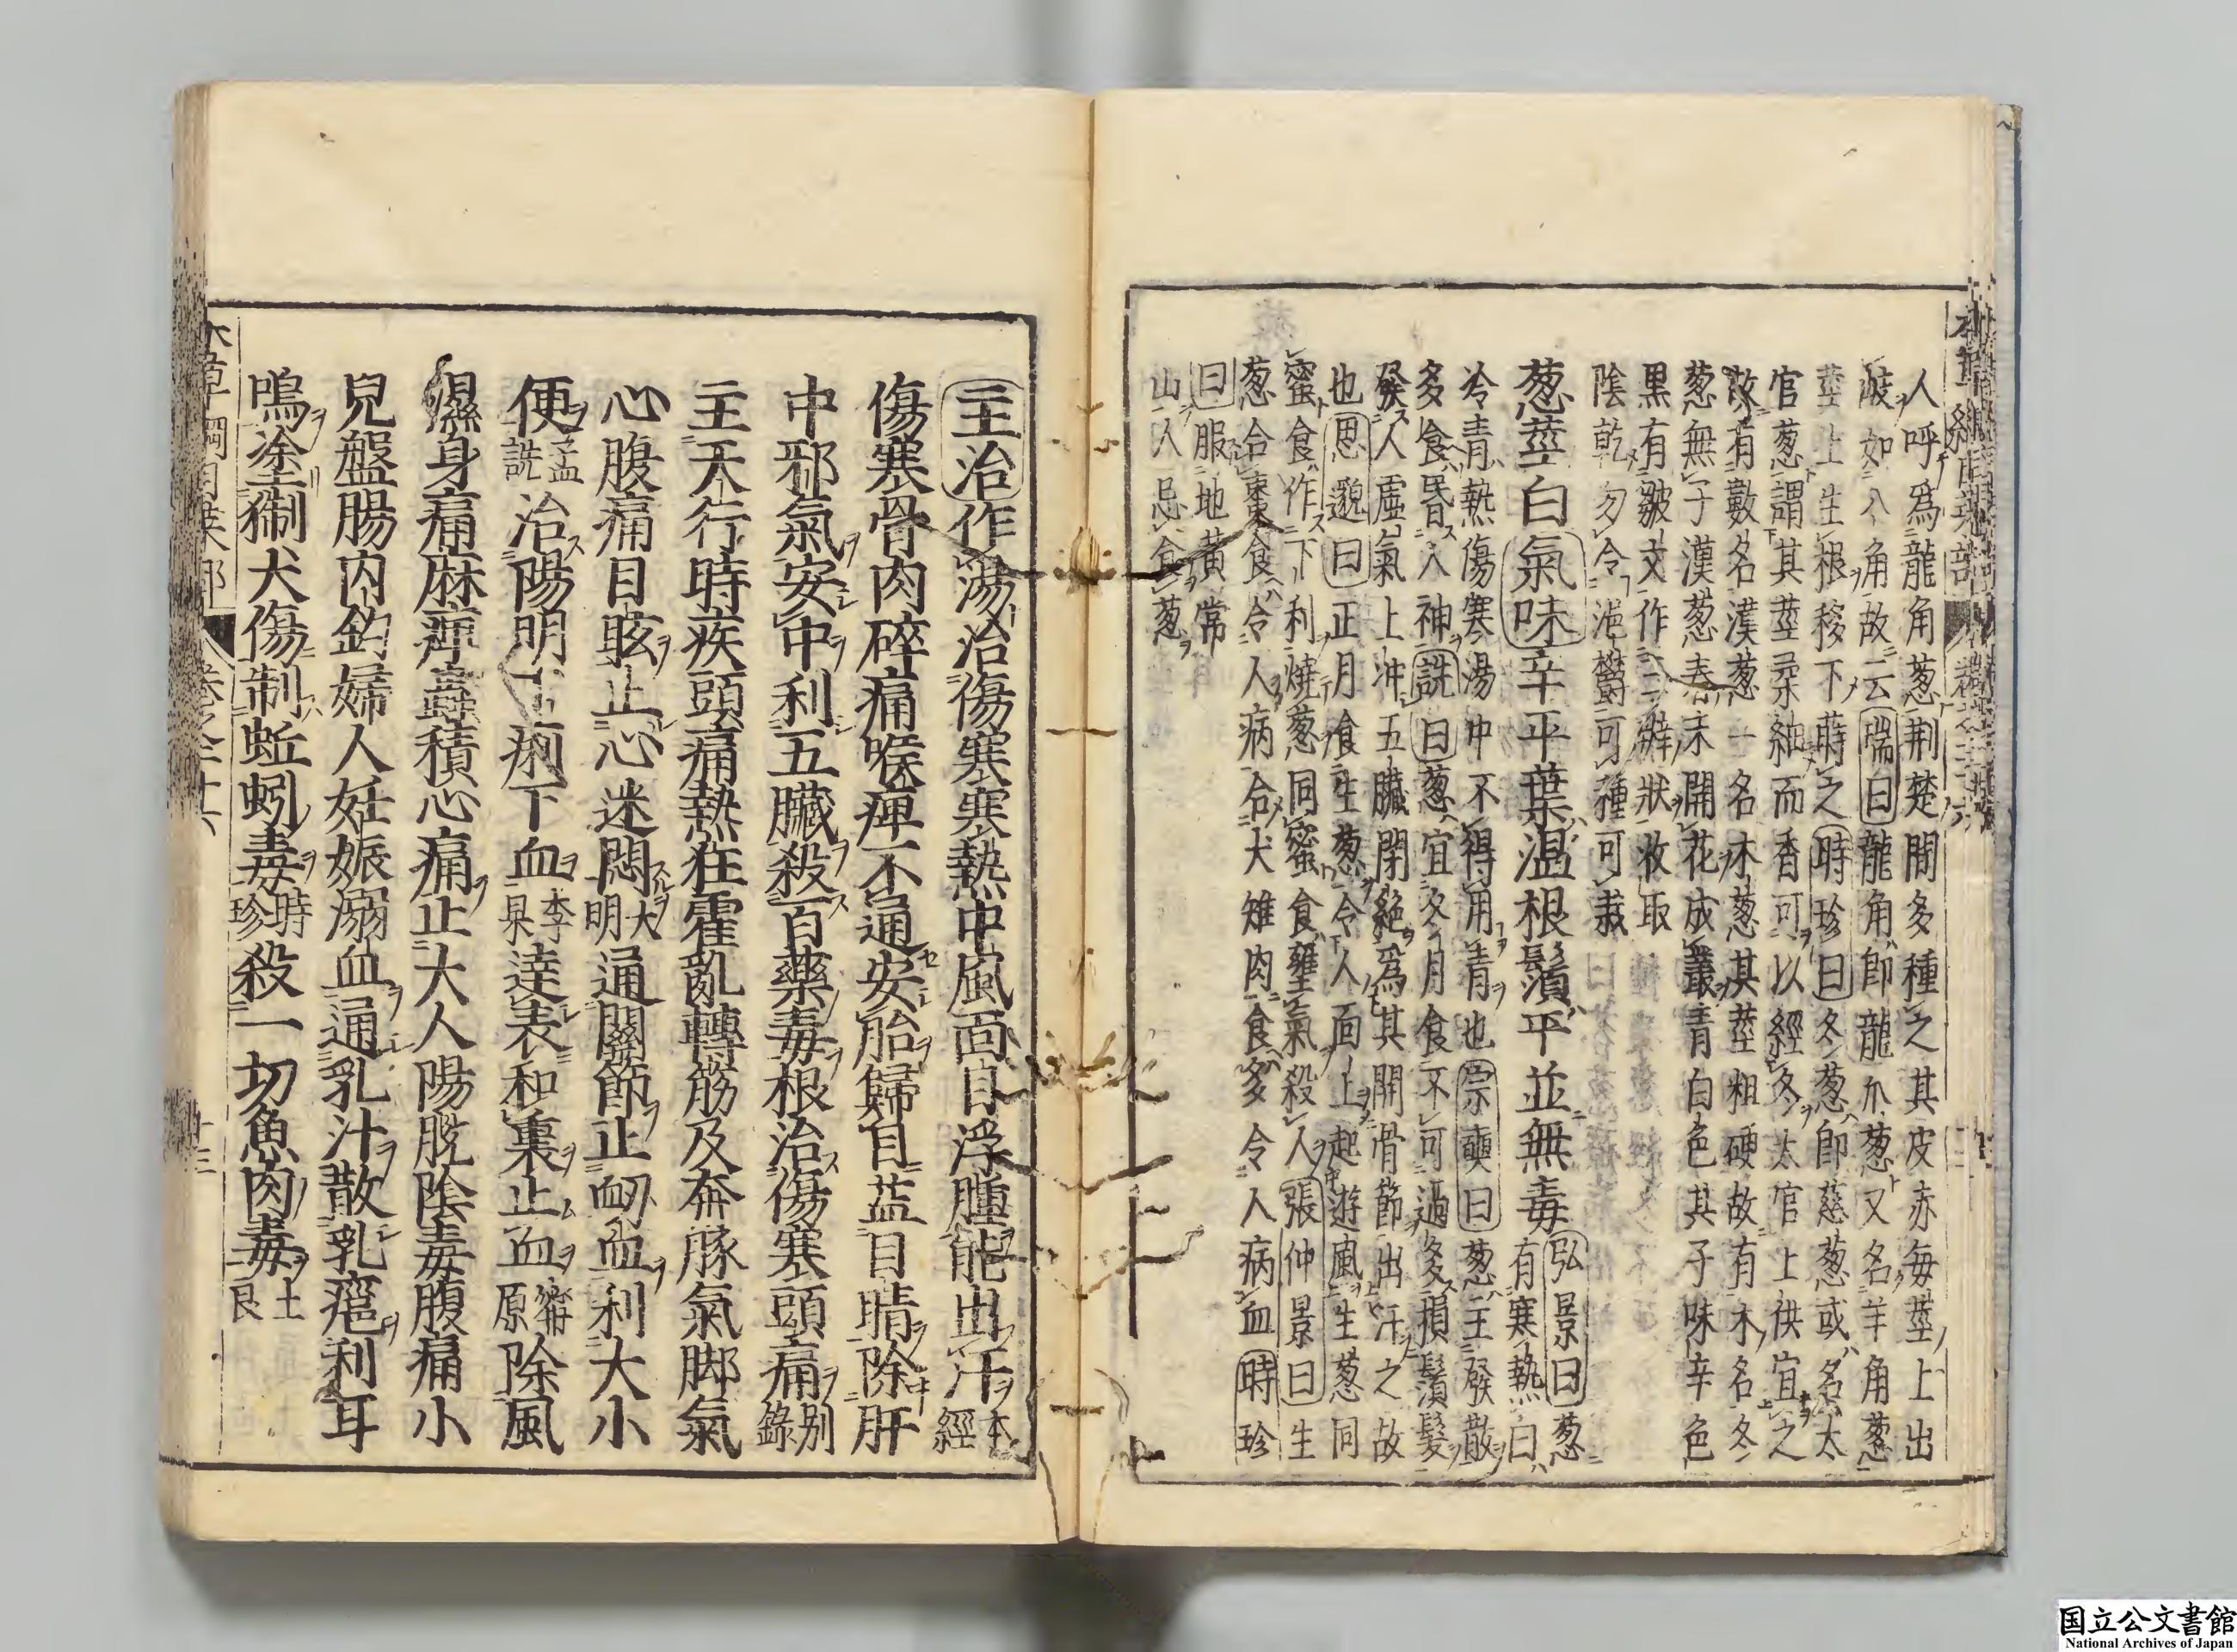 人呼爲龍角葱荆楚間多種之其皮赤每莖上出
岐如八角故云瑞曰龍角卽龍爪葱又名羊角葱
莖上生根移下蒔之時珍曰冬葱卽慈葱或名太
官葱謂其莖柔細而香可以經冬太官上供宜之
故有數名漢葱一名木葱其莖粗硬故有木名冬
葱無子漢葱春末開花成叢青白色其子味辛色
黒有皺文作三瓣狀收取
陰乾勿令浥鬱可種可栽
葱莖白氣味辛平葉溫根鬚平並無毒弘景曰葱
有寒熱白
冷青熱傷寒湯中不得用青也宗奭曰葱主發散
多食昏人神詵曰葱宜冬月食不可過多損鬚髮
發人虛氣上冲五臟閉絕爲其開骨節出汗之故
也思邈曰正月食生葱令人面上起遊風生葱同
蜜食作下利燒葱同蜜食壅氣殺人張仲景曰生
葱合棗食令人病合犬雉肉食多令人病血時珍
曰服地黃常
山人忌食葱
主治作湯治傷寒寒熱中風面目浮腫能出汗本經
傷寒骨肉碎痛喉痺不通安胎歸目益目睛除肝
中邪氣安中利五臟殺百藥毒根治傷寒頭痛别錄
主天行時疾頭痛熱狂霍亂轉筋及奔豚氣脚氣
心腹痛目眩止心迷悶大明通關節止衂血利大小
便孟詵治陽明下痢下血李杲達表和裏止血寗原除風
濕身痛麻痺蟲積心痛止大人陽脫陰毒腹痛小
兒盤腸内釣婦人妊娠溺血通乳汁散乳癰利耳
鳴塗猘犬傷制蚯蚓毒時珍殺一切魚肉毒士良
本草綱目菜部 卷之二十六 十三
国立公文書館
National Archives of Japan